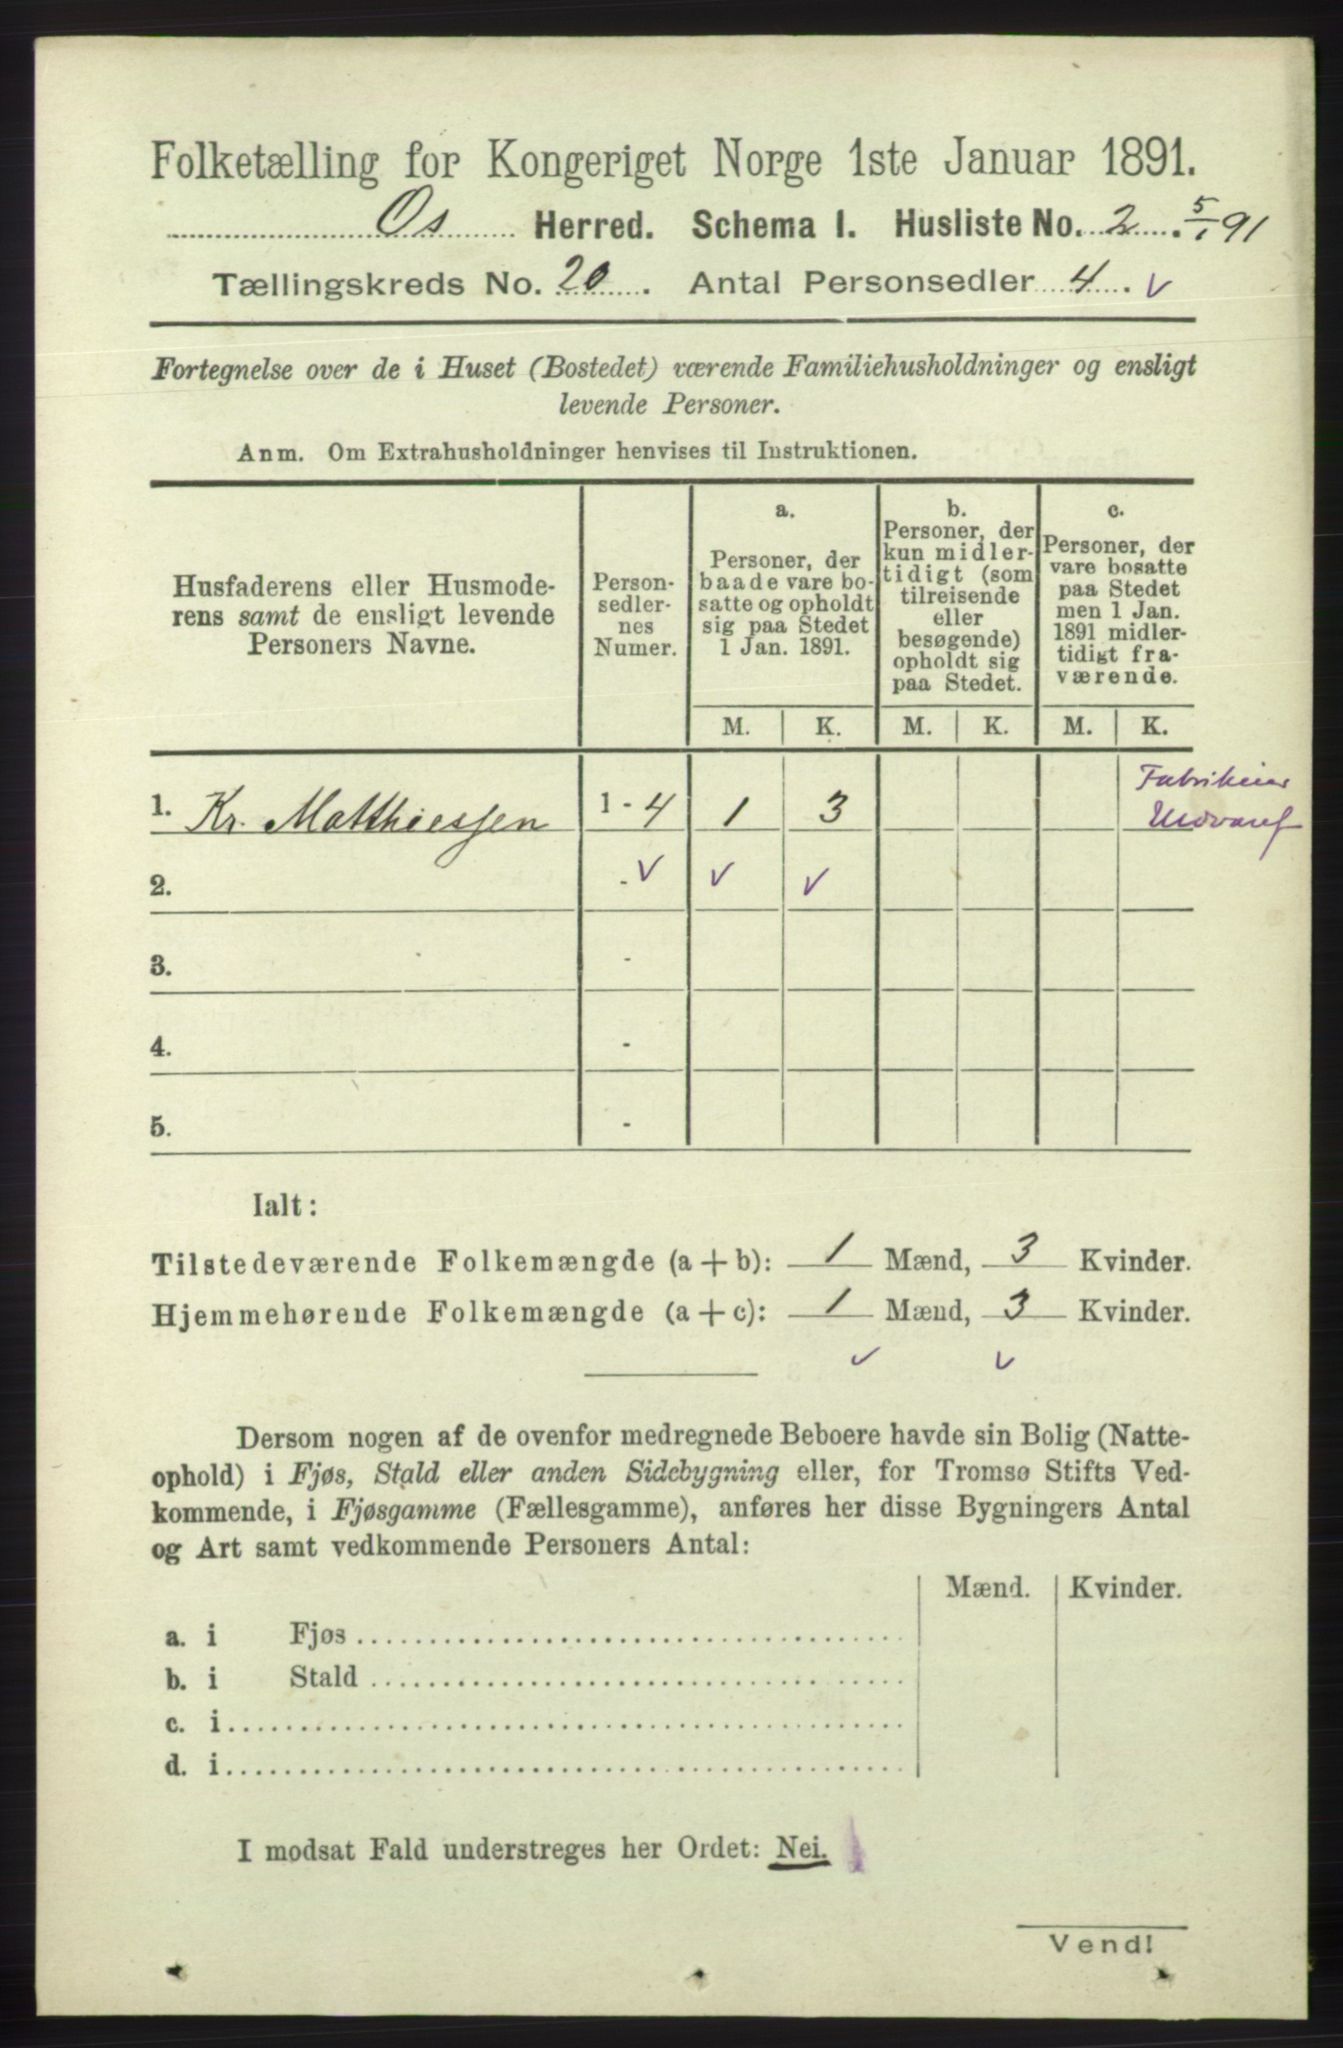 Folketælling for Kongeriget Norge 1ste Januar 1891.
Os Herred. Schema I. Husliste No. 2. 5/1 91
Tællingskreds No. 20. Antal Personsedler 4. v
Fortegnelse over de i Huset (Bostedet) værende Familiehusholdninger og ensligt
levende Personer.
Anm. Om Extrahusholdninger henvises til Instruktionen.
Husfaderens eller Husmode-
rens samt de ensligt levende
Personers Navne.
Person-
sedler-
nes
Numer.
a.
Personer, der
baade vare bo-
satte og opholdt
sig paa Stedet
1 Jan. 1891.
b.
Personer, der
kun midler-
tidigt (som
tilreisende
eller
besøgende)
opholdt sig
paa Stedet.
c.
Personer, der
vare bosatte
paa Stedet
men 1 Jan.
1891 midler-
tidigt fra-
værende.
M. K. M. K. M. K.
1. Kr. Matthiessen 1 - 4 1 3
2. - v v v
3. -
4. -
5. -
Ialt:
Tilstedeværende Folkemængde (a + b): 1 Mænd, 3 Kvinder.
Hjemmehørende Folkemængde (a + c): 1 Mænd, 3 Kvinder.
v v
Dersom nogen af de ovenfor medregnede Beboere havde sin Bolig (Natte-
ophold) i Fjøs, Stald eller anden Sidebygning eller, for Tromsø Stifts Ved-
kommende, i Fjøsgamme (Fællesgamme), anføres her disse Bygningers Antal
og Art samt vedkommende Personers Antal:
Mænd. Kvinder.
a. i Fjøs
b. i Stald
c. i
d. i
I modsat Fald understreges her Ordet: Nei.
Vend!